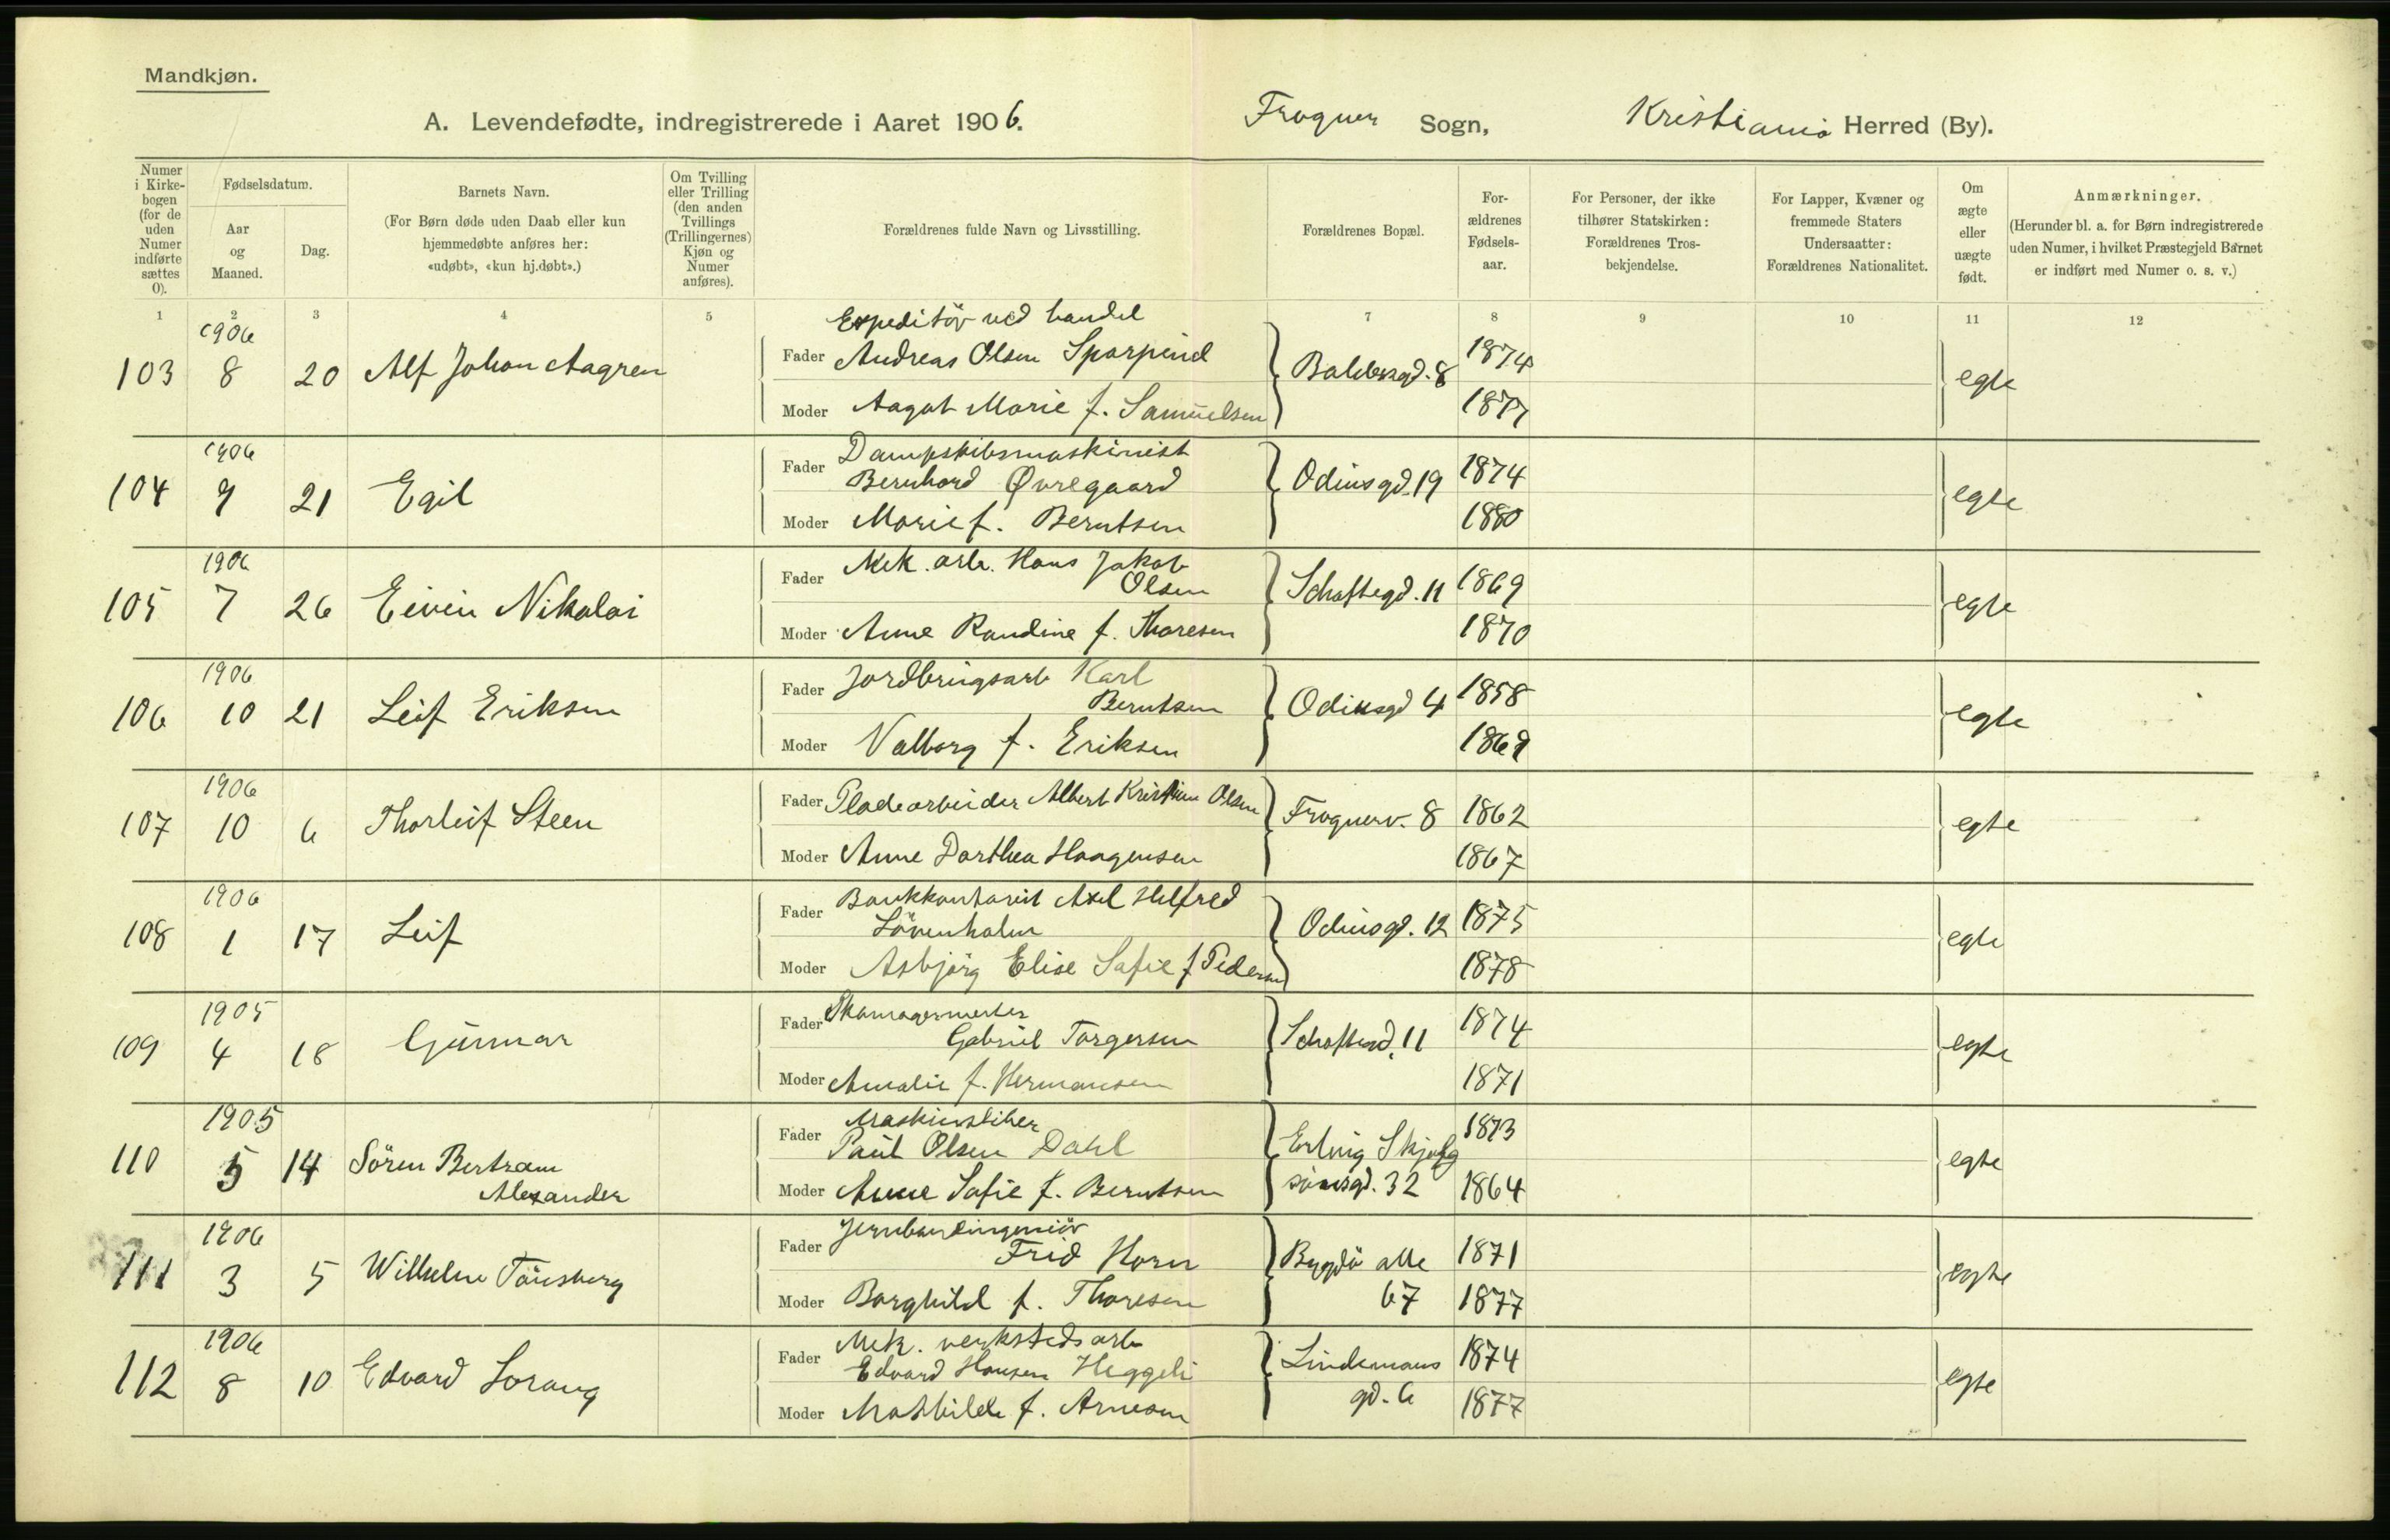 Mandkjøn.
A. Levendefødte, indregistrerede i Aaret 1906. Frogner Sogn, Kristiania Herred (By).
Numer i Kirke-bogen (for de uden Numer indførte sættes 0).
Fødselsdatum.
Aar og Maaned.
Dag.
Barnets Navn.
(For Børn døde uden Daab eller kun hjemmedøbte anføres her: «udøbt», «kun hj.døbt».)
Om Tvilling eller Trilling (den anden Tvillings (Trillingernes) Kjøn og Numer anføres).
Forældrenes fulde Navn og Livsstilling.
Forældrenes Bopæl.
For-ældrenes Fødsels-aar.
For Personer, der ikke tilhører Statskirken: Forældrenes Tros-bekjendelse.
For Lapper, Kvæner og fremmede Staters Undersaatter: Forældrenes Nationalitet.
Om ægte eller uægte født.
Anmærkninger.
(Herunder bl. a. for Børn indregistrerede uden Numer, i hvilket Præstegjeld Barnet er indført med Numer o. s. v.)
1 2 3 4 5 7 8 9 10 11 12
1906 Expeditör ved handel
103 8 20 Alf Johan Aagren Fader Andreas Olsen Sparpind Baldersgd. 8 1874 egte
Moder Aagot Marie f. Samuelsen 1877
1906 Fader Dampskibsmaskinist
104 9 21 Egil Bernhard Øvregaard Odinsgd. 19 1874 egte
Moder Marie f. Berntsen 1880
1906 Fader Mek. arb. Hans Jakob
105 7 26 Eivin Nikolai Olsen Schaftegd. 11 1869 egte
Moder Anne Randine f. Thoresen 1870
1906 Fader Karl
106 10 21 Leif Eriksen Berntsen Odinsgd 4 1858 egte
Moder Valborg f. Eriksen 1869
1906 Fader Pladearbeider Albert Kristian Olsen
107 10 6 Thorleif Steen Frognerv. 8 1862 egte
Moder Anne Dorthea Haagensen 1867
1906 Fader Bankkontorist Axel Helfred
108 1 17 Leif Lövenholm Odinsgd. 12 1875 egte
Moder Asbjörg Elise Sofie f Pedersen 1878
1905 Fader Skomagermester
109 4 18 Gunnar Gabriel Torgersen Schaftegd. 11 1874 egte
Moder Amalie f. Hermansen 1871
1905 Fader Maskinsliber
110 5 14 Sören Bertram Alexander Paul Olsen Dahl Erling Skjalg 1873 egte
Moder Anne Sofie f. Berntsen sönsgd. 32 1864
1906 Fader Jernbaneingeniör
111 3 5 Wilhelm Tönsberg Frid Horn Bygdö alle 1871 egte
Moder Borghild f. Thoresen 67 1877
1906 Fader Mek. verkstedsarb
112 8 10 Edvard Lorang Edvard Hansen Heggeli Lindemans 1874 egte
Moder Mathilde f. Arnesen gd. 6 1877